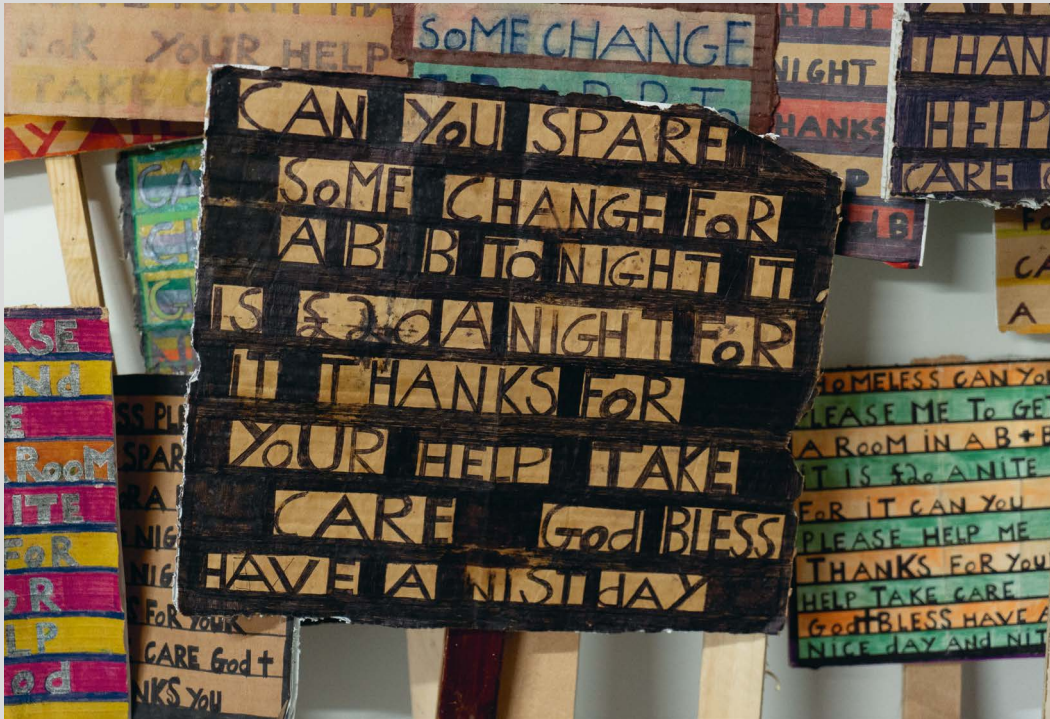 FOR YOUR HELP
TAKE
SOME CHANGE
HT IT
NIGHT
THANKS
P
THAN
HELP
CARE
CAN YOU SPARE
SOME CHANGE FOR
A B B TO NIGHT IT
IS £20 A NIGHT FOR
IT THANKS FOR
YOUR HELP TAKE
CARE God BLESS
HAVE A NIST dAY
CA
A
ASE
Nd
E
ROOM
ITE
FOR
OR
LP
od
SS PL
SPAR
RA
NIG
NIG
S FOR YOUR
CARE God †
NKS YOU
HOMELESS CAN YOU
LEASE ME TO GET
A ROOM iN A B + B
IT IS £20 A NITE
FOR iT CAN YOU
PLEASE HELP ME
THANKS FOR YOUR
HELP TAKE CARE
God † BLESS HAVE A
NICE dAY ANd NIT